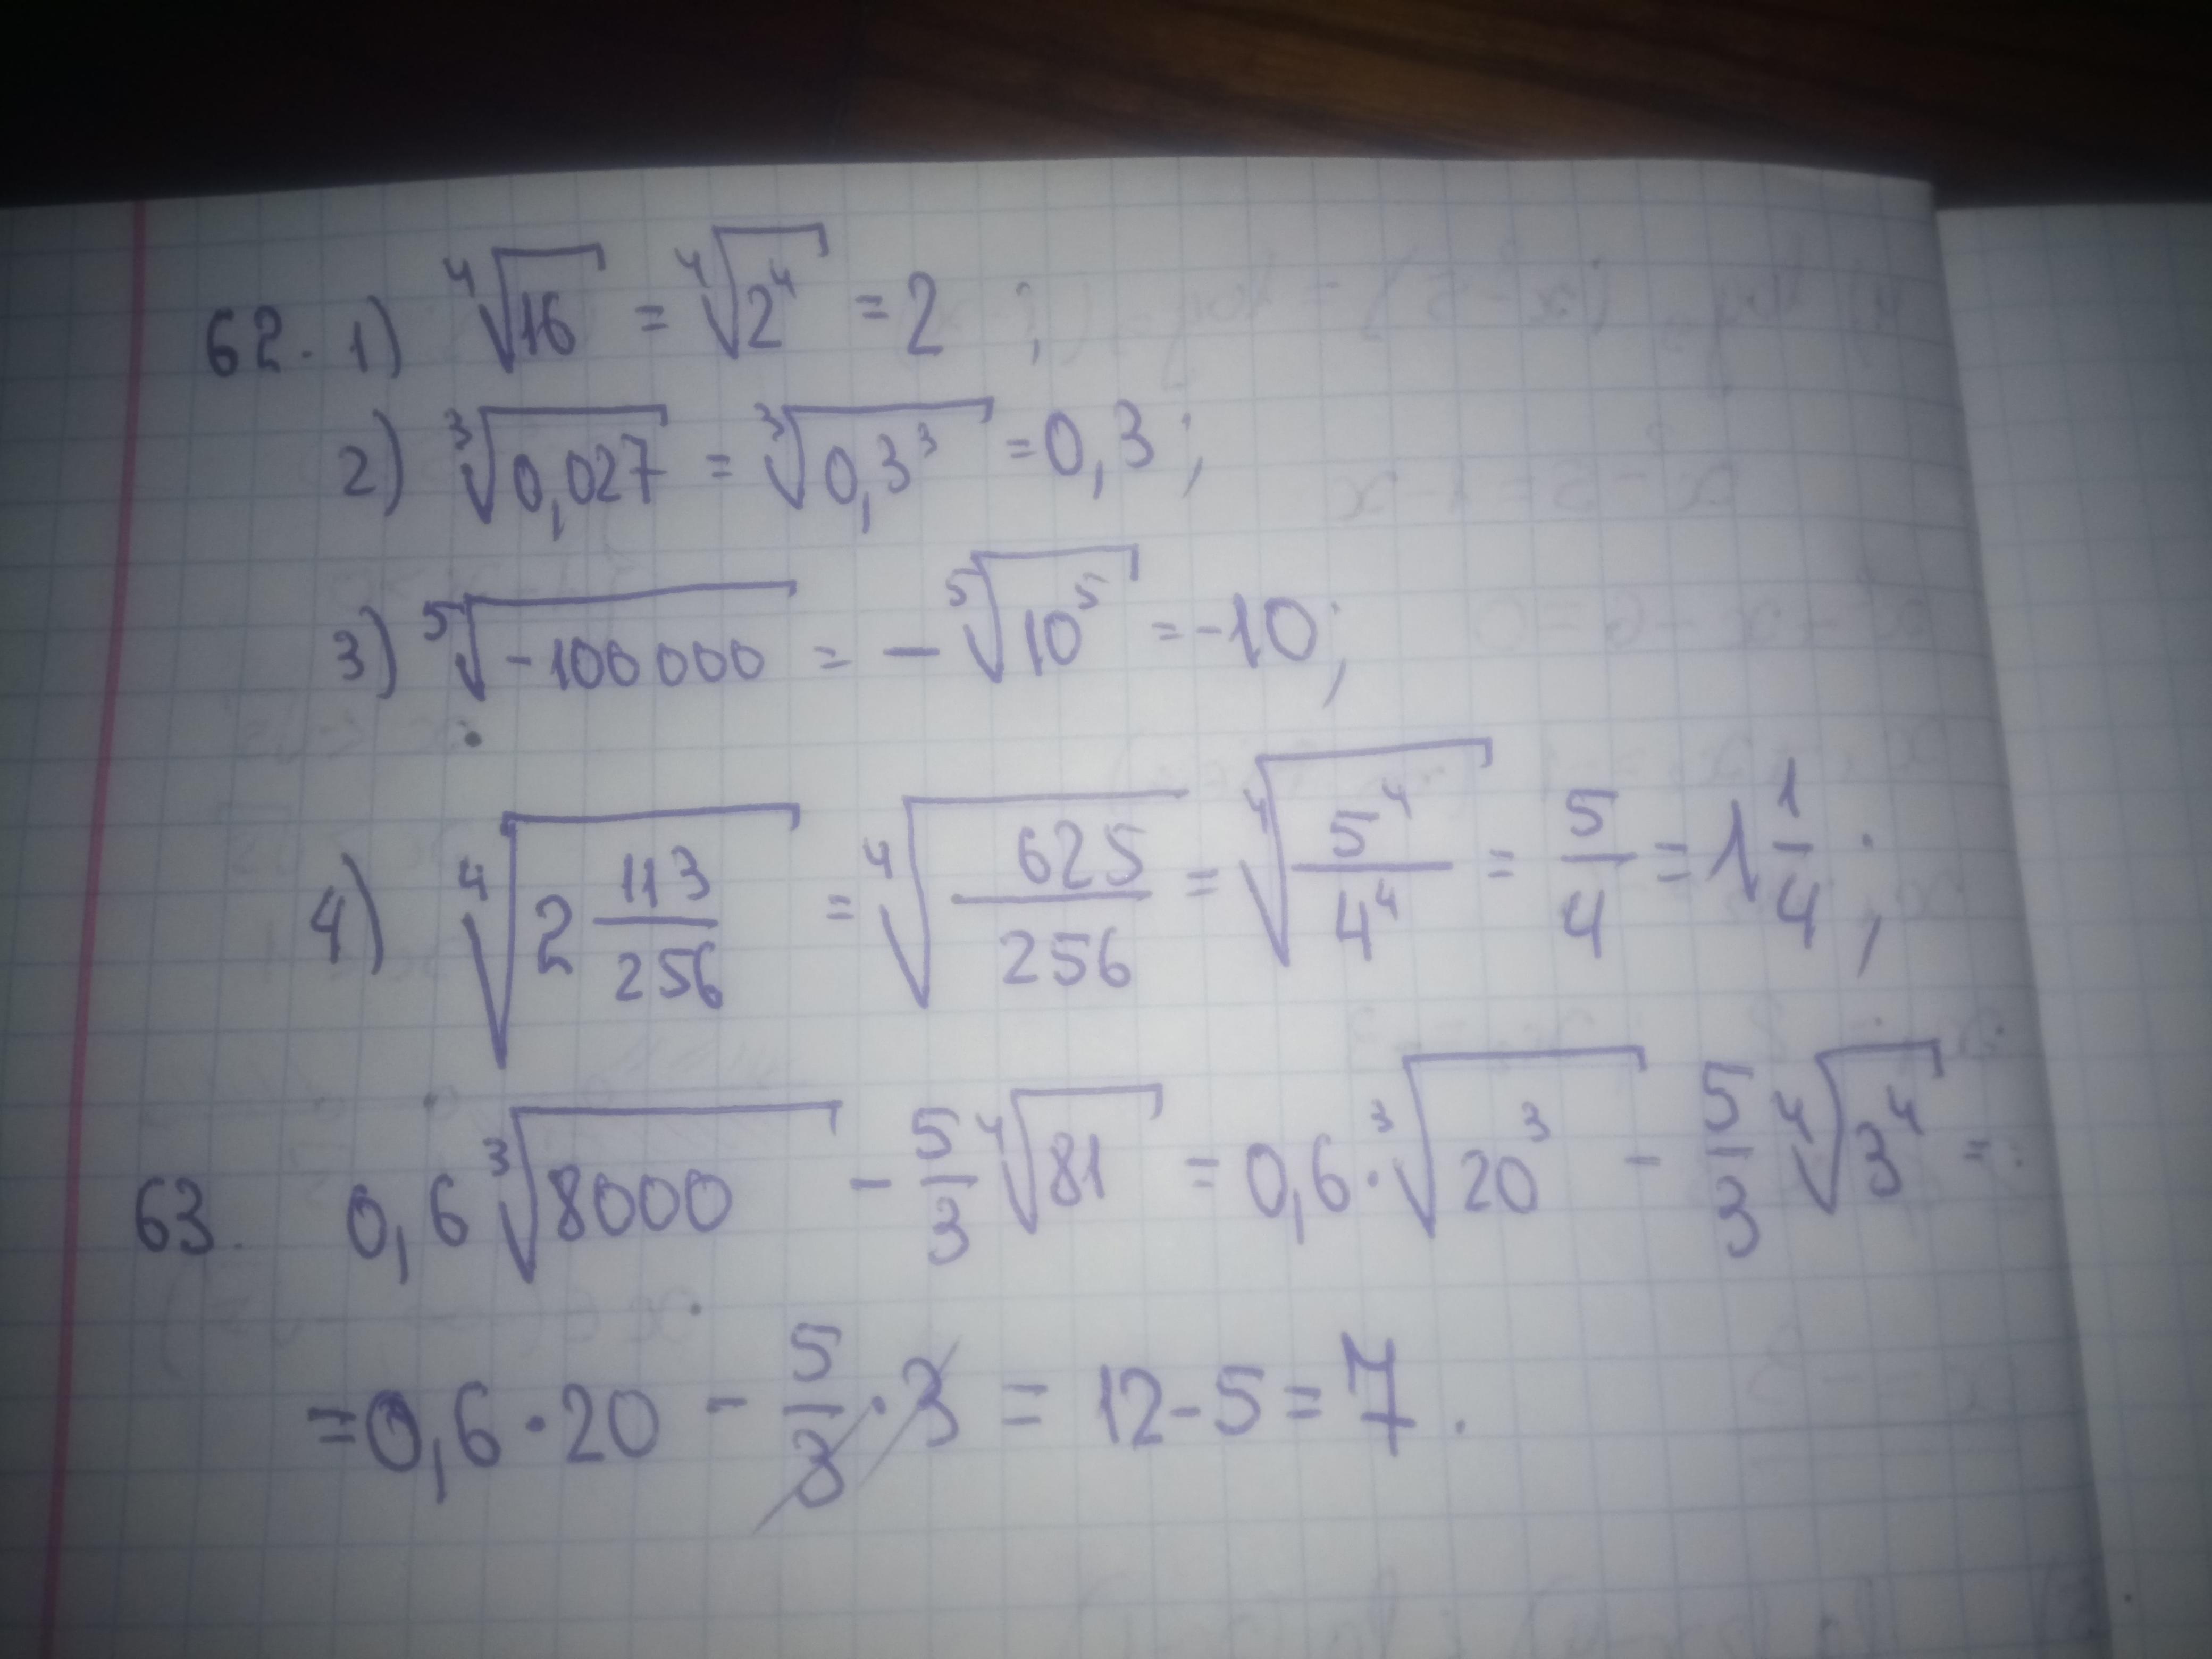 62. 1) ⁴√16 = ⁴√2⁴ = 2 ;
2) ³√0,027 = ³√0,3³ = 0,3 ;
3) ⁵√-100 000 = - ⁵√10⁵ = -10 ;
4) ⁴√2 113/256 = ⁴√625/256 = ⁴√5⁴/4⁴ = 5/4 = 1 1/4 ;
63. 0,6 ³√8000 - 5/3 ⁴√81 = 0,6 · ³√20³ - 5/3 ⁴√3⁴ =
= 0,6 · 20 - 5/3 · 3 = 12 - 5 = 7 .